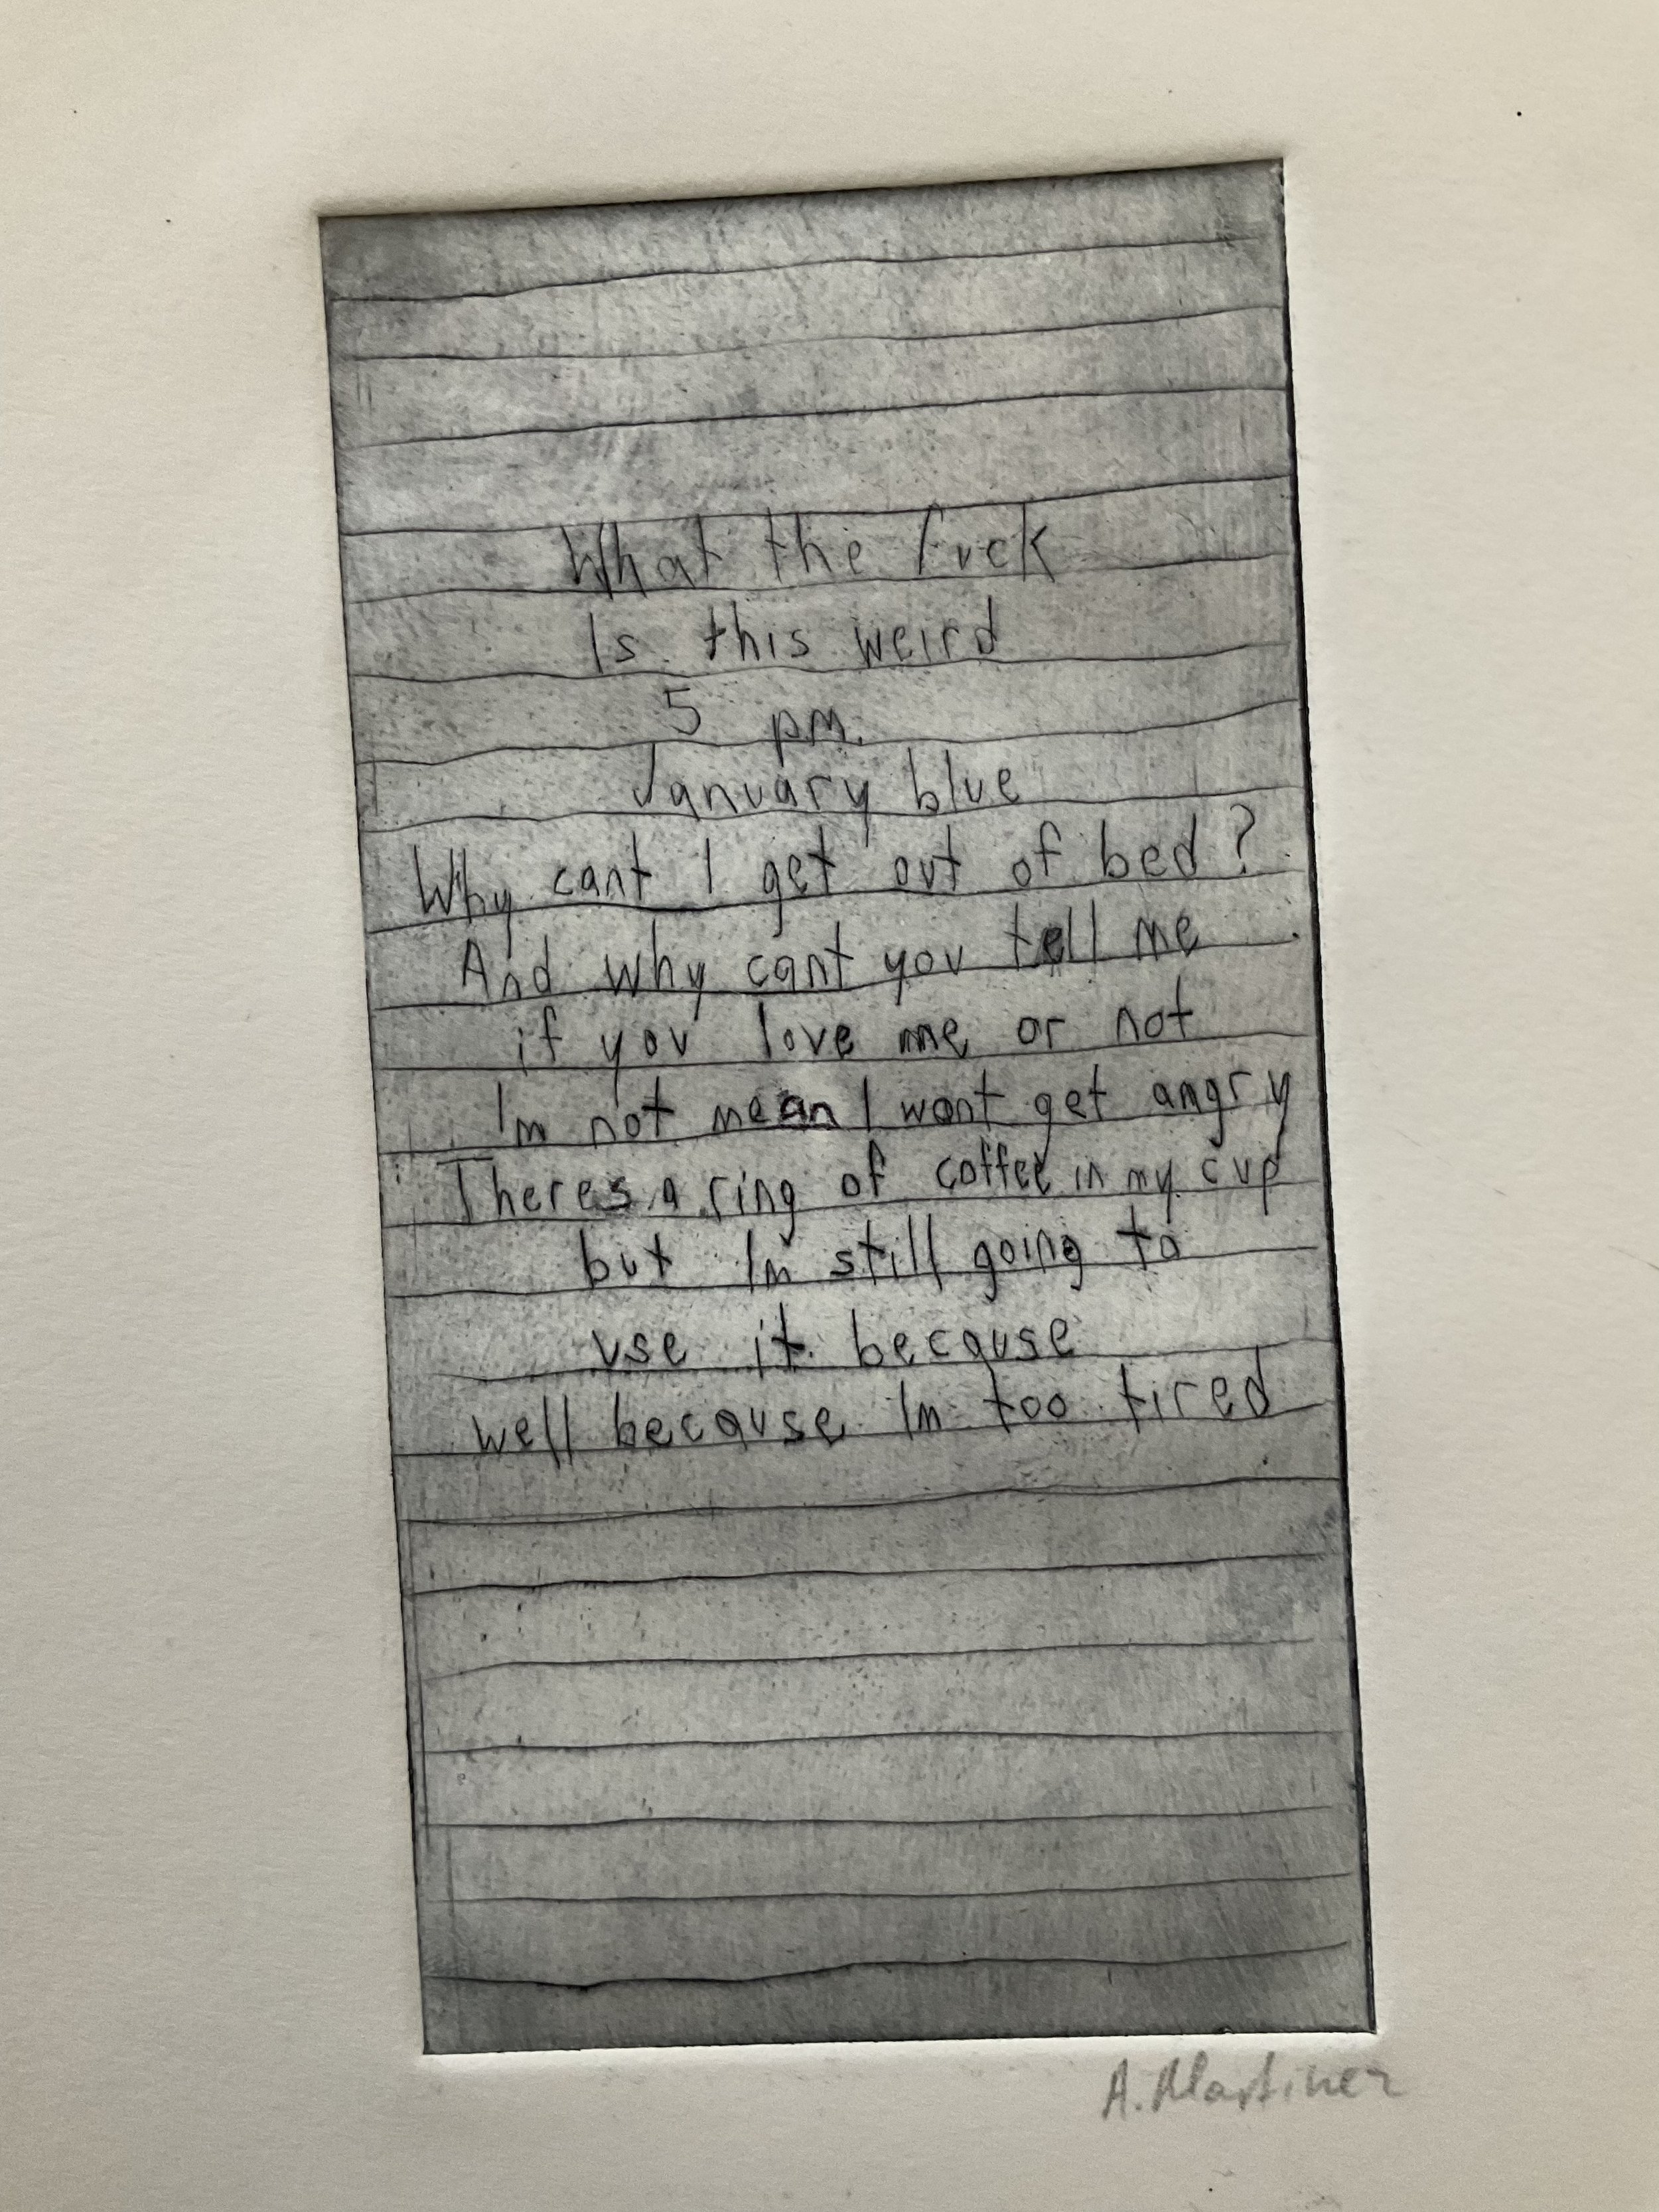 What the fuck
Is this weird
5 pm.
January blue
Why cant I get out of bed?
And why cant you tell me
if you love me or not
Im not mean I wont get angry
Theres a ring of coffee in my cup
but Im still going to
use it because
well because Im too tired
A. Martinez